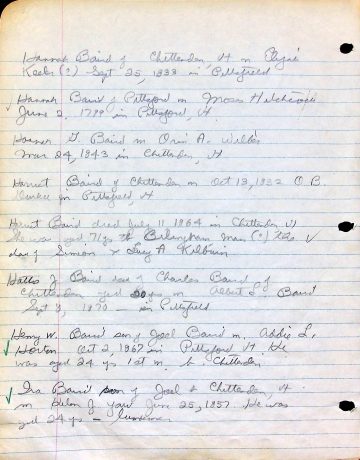 Hannah Baird of Chittenden, Vt m Elijah
Keeler (?) Sept 25, 1833 in Pittsfield
Hannah Baird of Pittsford m Moses Hitchcock
June 2, 1799 in Pittsford, Vt.
Hannah G. Baird m Orin A. Wilber
Mar 24, 1843 in Chittenden, Vt
Harriet Baird of Chittenden m Oct 13, 1832 O. B.
in Pittsford, Vt
Harriet Baird died July 11 1864 in Chittenden Vt
She was aged 71 yrs Birmingham Mass (?)
dau of Simeon & Lucy A Kilburn
Hattie J. Baird dau of Charles Baird of
Chittenden aged 20 yrs m Albert L. Baird
Sept 3, 1870 — in Pittsfield
Henry W. Baird son of Joel Baird m. Addie L.
Horton Oct 2, 1867 in Pittsford Vt He
was aged 24 yrs 1st m. b. Chittenden
Ira Baird son of Joel b Chittenden, Vt.
m Helen J. Yaw Jan 25, 1857. He was
aged 24 yrs —